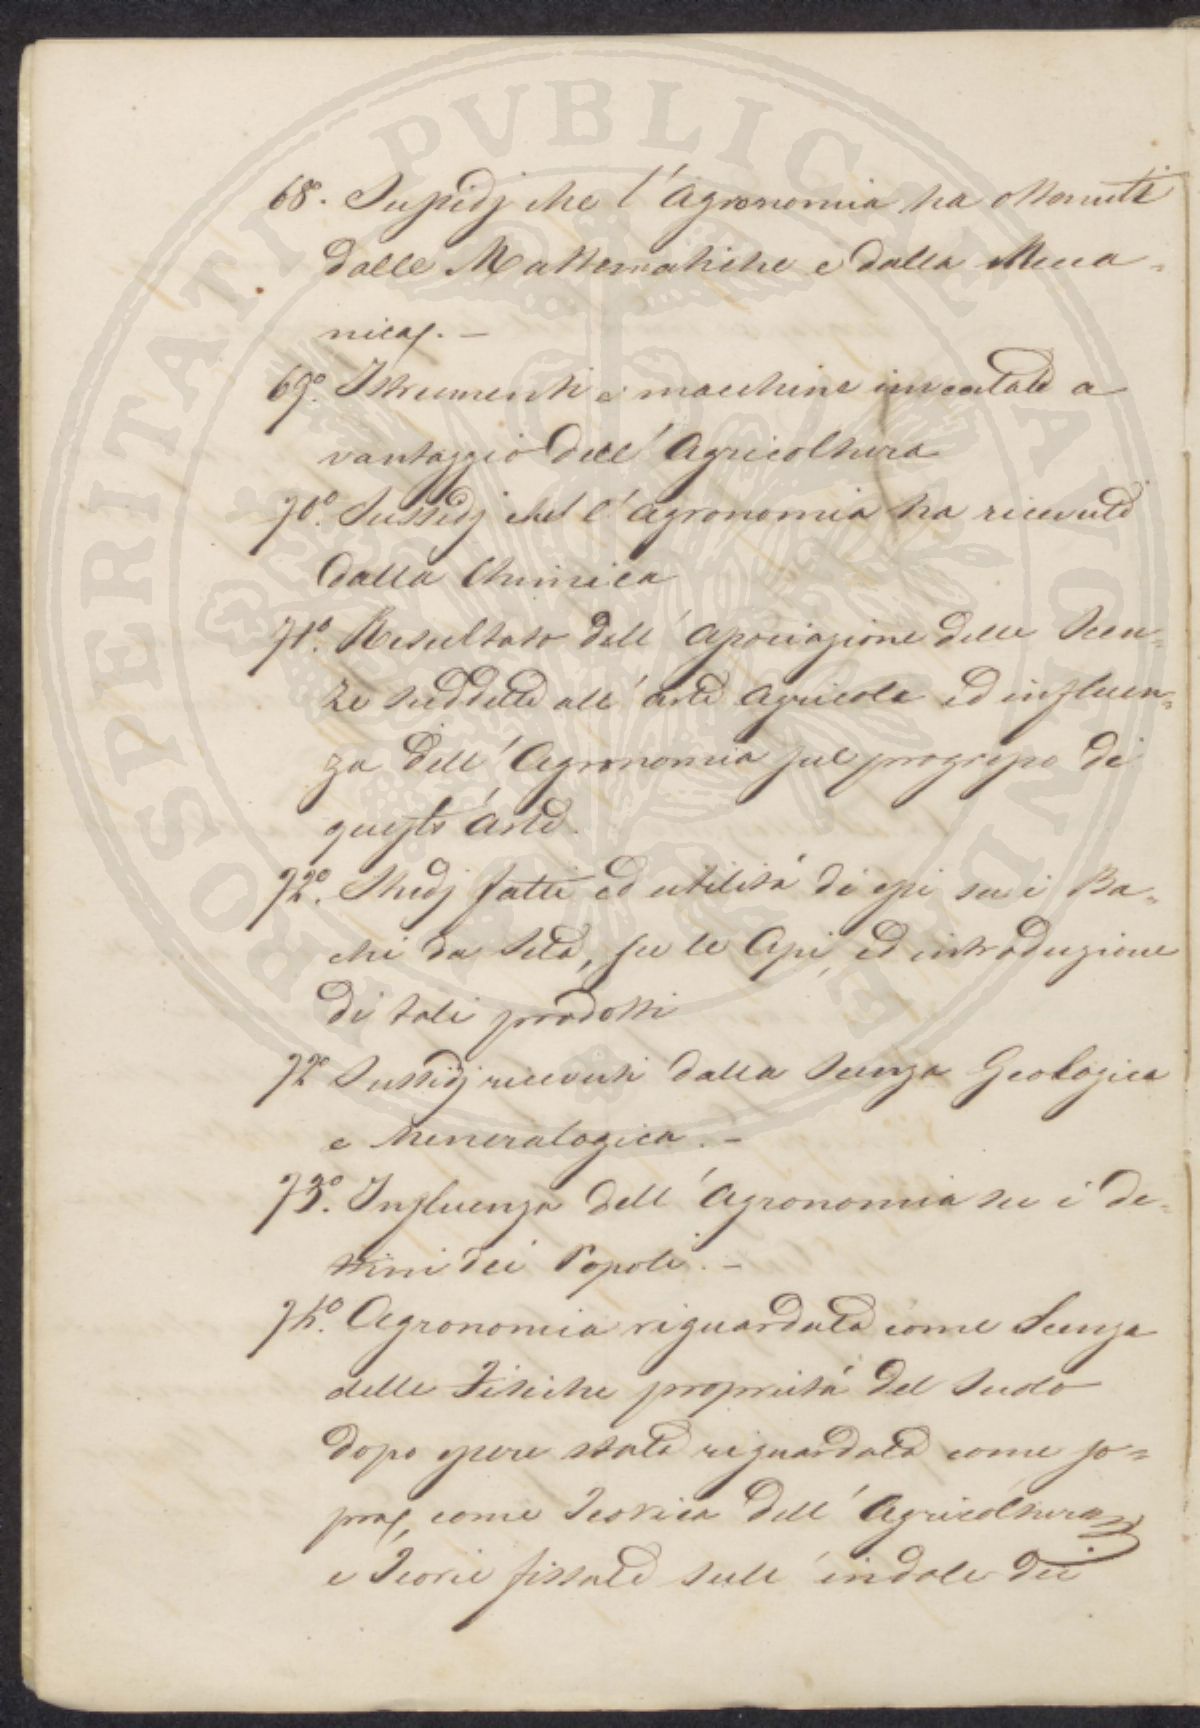 68. Sussidj che l'Agronomia ha ottenuti
dalle Mattematiche e dalla Mecca=
nica. —
69.° Istrumenti e macchine inventate a
vantaggio dell'Agricoltura
70.° Sussidj che l'Agronomia ha ricevuto
dalla Chimica
71.° Resultato dell'Associazione delle Scen=
ze suddette all'arte Agricola ed influen=
za dell'Agronomia sul progresso di
quest'Arte.
72.° Studj fatti ed utilità di essi su i Ba=
chi da Seta, su le Api, ed introduzione
di tali prodotti
72° Sussidj ricevuti dalla Scenza Geologica
e Mineralogica. —
73.° Influenza dell'Agronomia su i de=
stini dei Popoli. —
74.° Agronomia riguardata come Scenza
delle Fisiche proprietà del Suolo
dopo essere stata riguardata come so=
pra, come Teorica dell'Agricoltura
e Teorie fissate sull'indole dei
PROSPERITATI PVBLICAE AVGENDAE